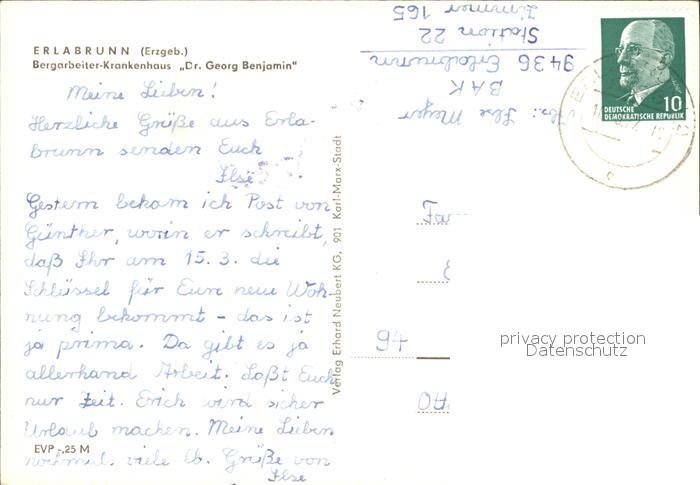 ERLABRUNN (Erzgeb.)
Bergarbeiter-Krankenhaus „Dr. Georg Benjamin"
Meine Lieben!
Herzliche Grüße aus Erla-
brunn senden Euch
Ilse
Gestern bekam ich Post von
Günther, worin er schreibt,
daß Ihr am 15. 3. die
Schlüssel für Eure neue Woh-
nung bekommt - das ist
ja prima. Da gibt es ja
allerhand Arbeit. Laßt Euch
nur Zeit. Erich wird sicher
Urlaub machen. Meine Lieben
nochmals viele lb. Grüße von
Ilse
EVP -,25 M
Verlag Erhard Neubert KG, 901 Karl-Marx-Stadt
Abs.: Ilse Meyer
BAK
9436 Erlabrunn
Station 22
Zimmer 165
10
DEUTSCHE
DEMOKRATISCHE REPUBLIK
94
privacy protection
Datenschutz